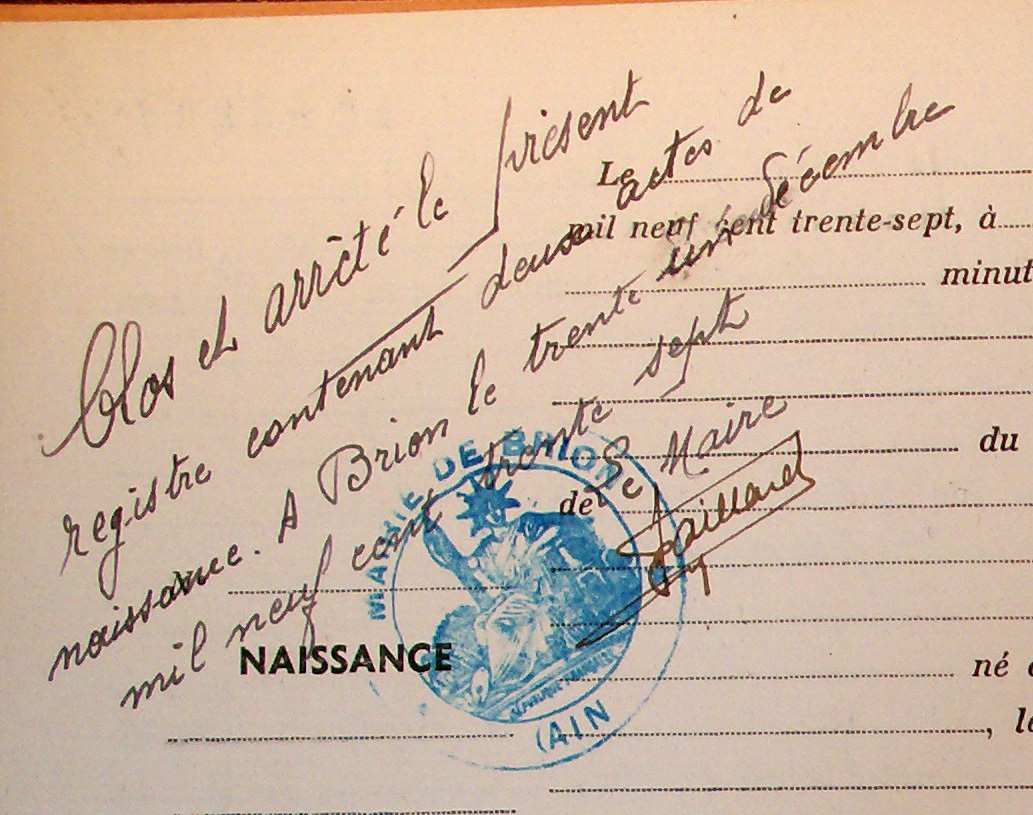 Clos et arrêté le présent
registre contenant deux actes de
naissance. A Brion le trente un décembre
mil neuf cent trente sept
Le Maire
Le
mil neuf cent trente-sept, à
minut
du
de
NAISSANCE
né
, l
MAIRIE DE BRION
(AIN